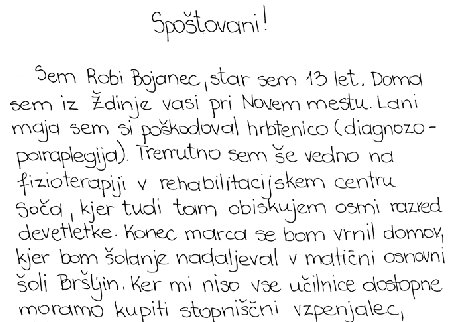 Spoštovani!
Sem Robi Bojanec, star sem 13 let. Doma
sem iz Ždinje vasi pri Novem mestu. Lani
maja sem si poškodoval hrbtenico (diagnozo-
paraplegija). Tremutno sem še vedno na
fizioterapiji v rehabilitacijskem centru
Soča, kjer tudi tam obiskujem osmi razred
devetletke. Konec marca se bom vrnil domov,
kjer bom šolanje nadaljeval v matični osnovni
šoli Bršljin. Ker mi niso vse učilnice dostopne
moramo kupiti stopniščni vzpenjalec,